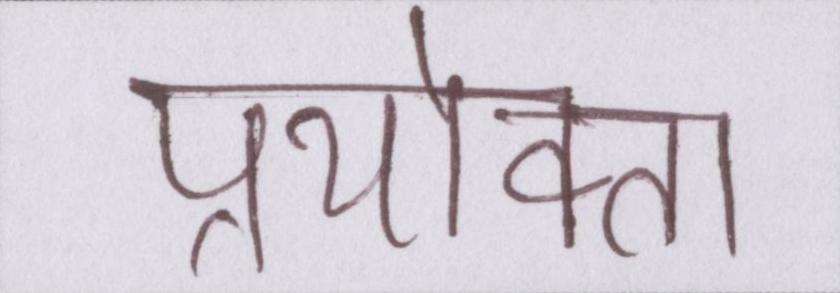 प्रयोक्ता